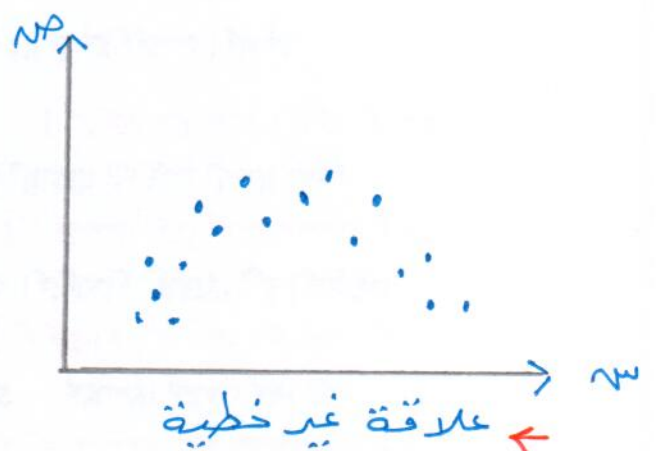 ص
س
علاقة غير خطية